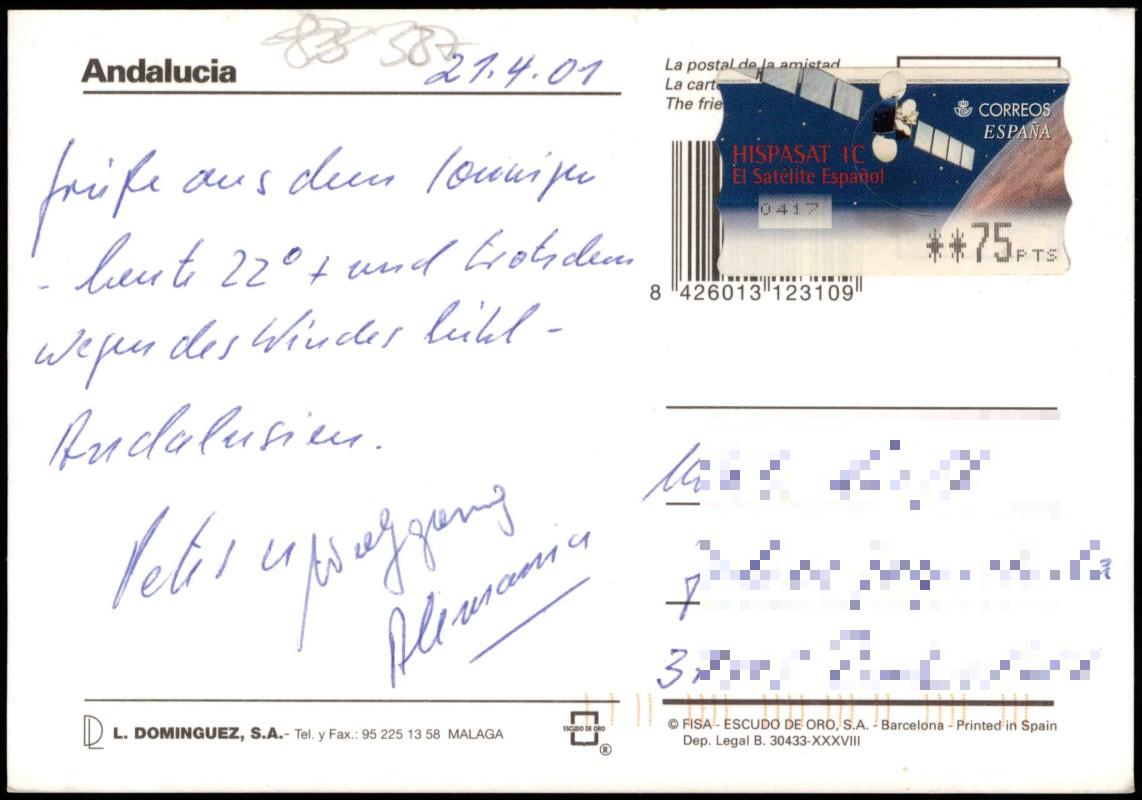 Andalucia
83 587
21.4.01
Grüße aus dem sonnigen
- heute 22° + und trotzdem
wegen des Windes kühl -
Andalusien.
Peter u Wolfgang
Alemania
La postal de la amistad
La cart
The frie
CORREOS
ESPAÑA
HISPASAT 1C
El Satélite Español
0417
**75PTS
8 426013 123109
L. DOMINGUEZ, S.A.- Tel. y Fax.: 95 225 13 58 MALAGA
ESCUDO DE ORO
®
© FISA - ESCUDO DE ORO, S.A. - Barcelona - Printed in Spain
Dep. Legal B. 30433-XXXVIII